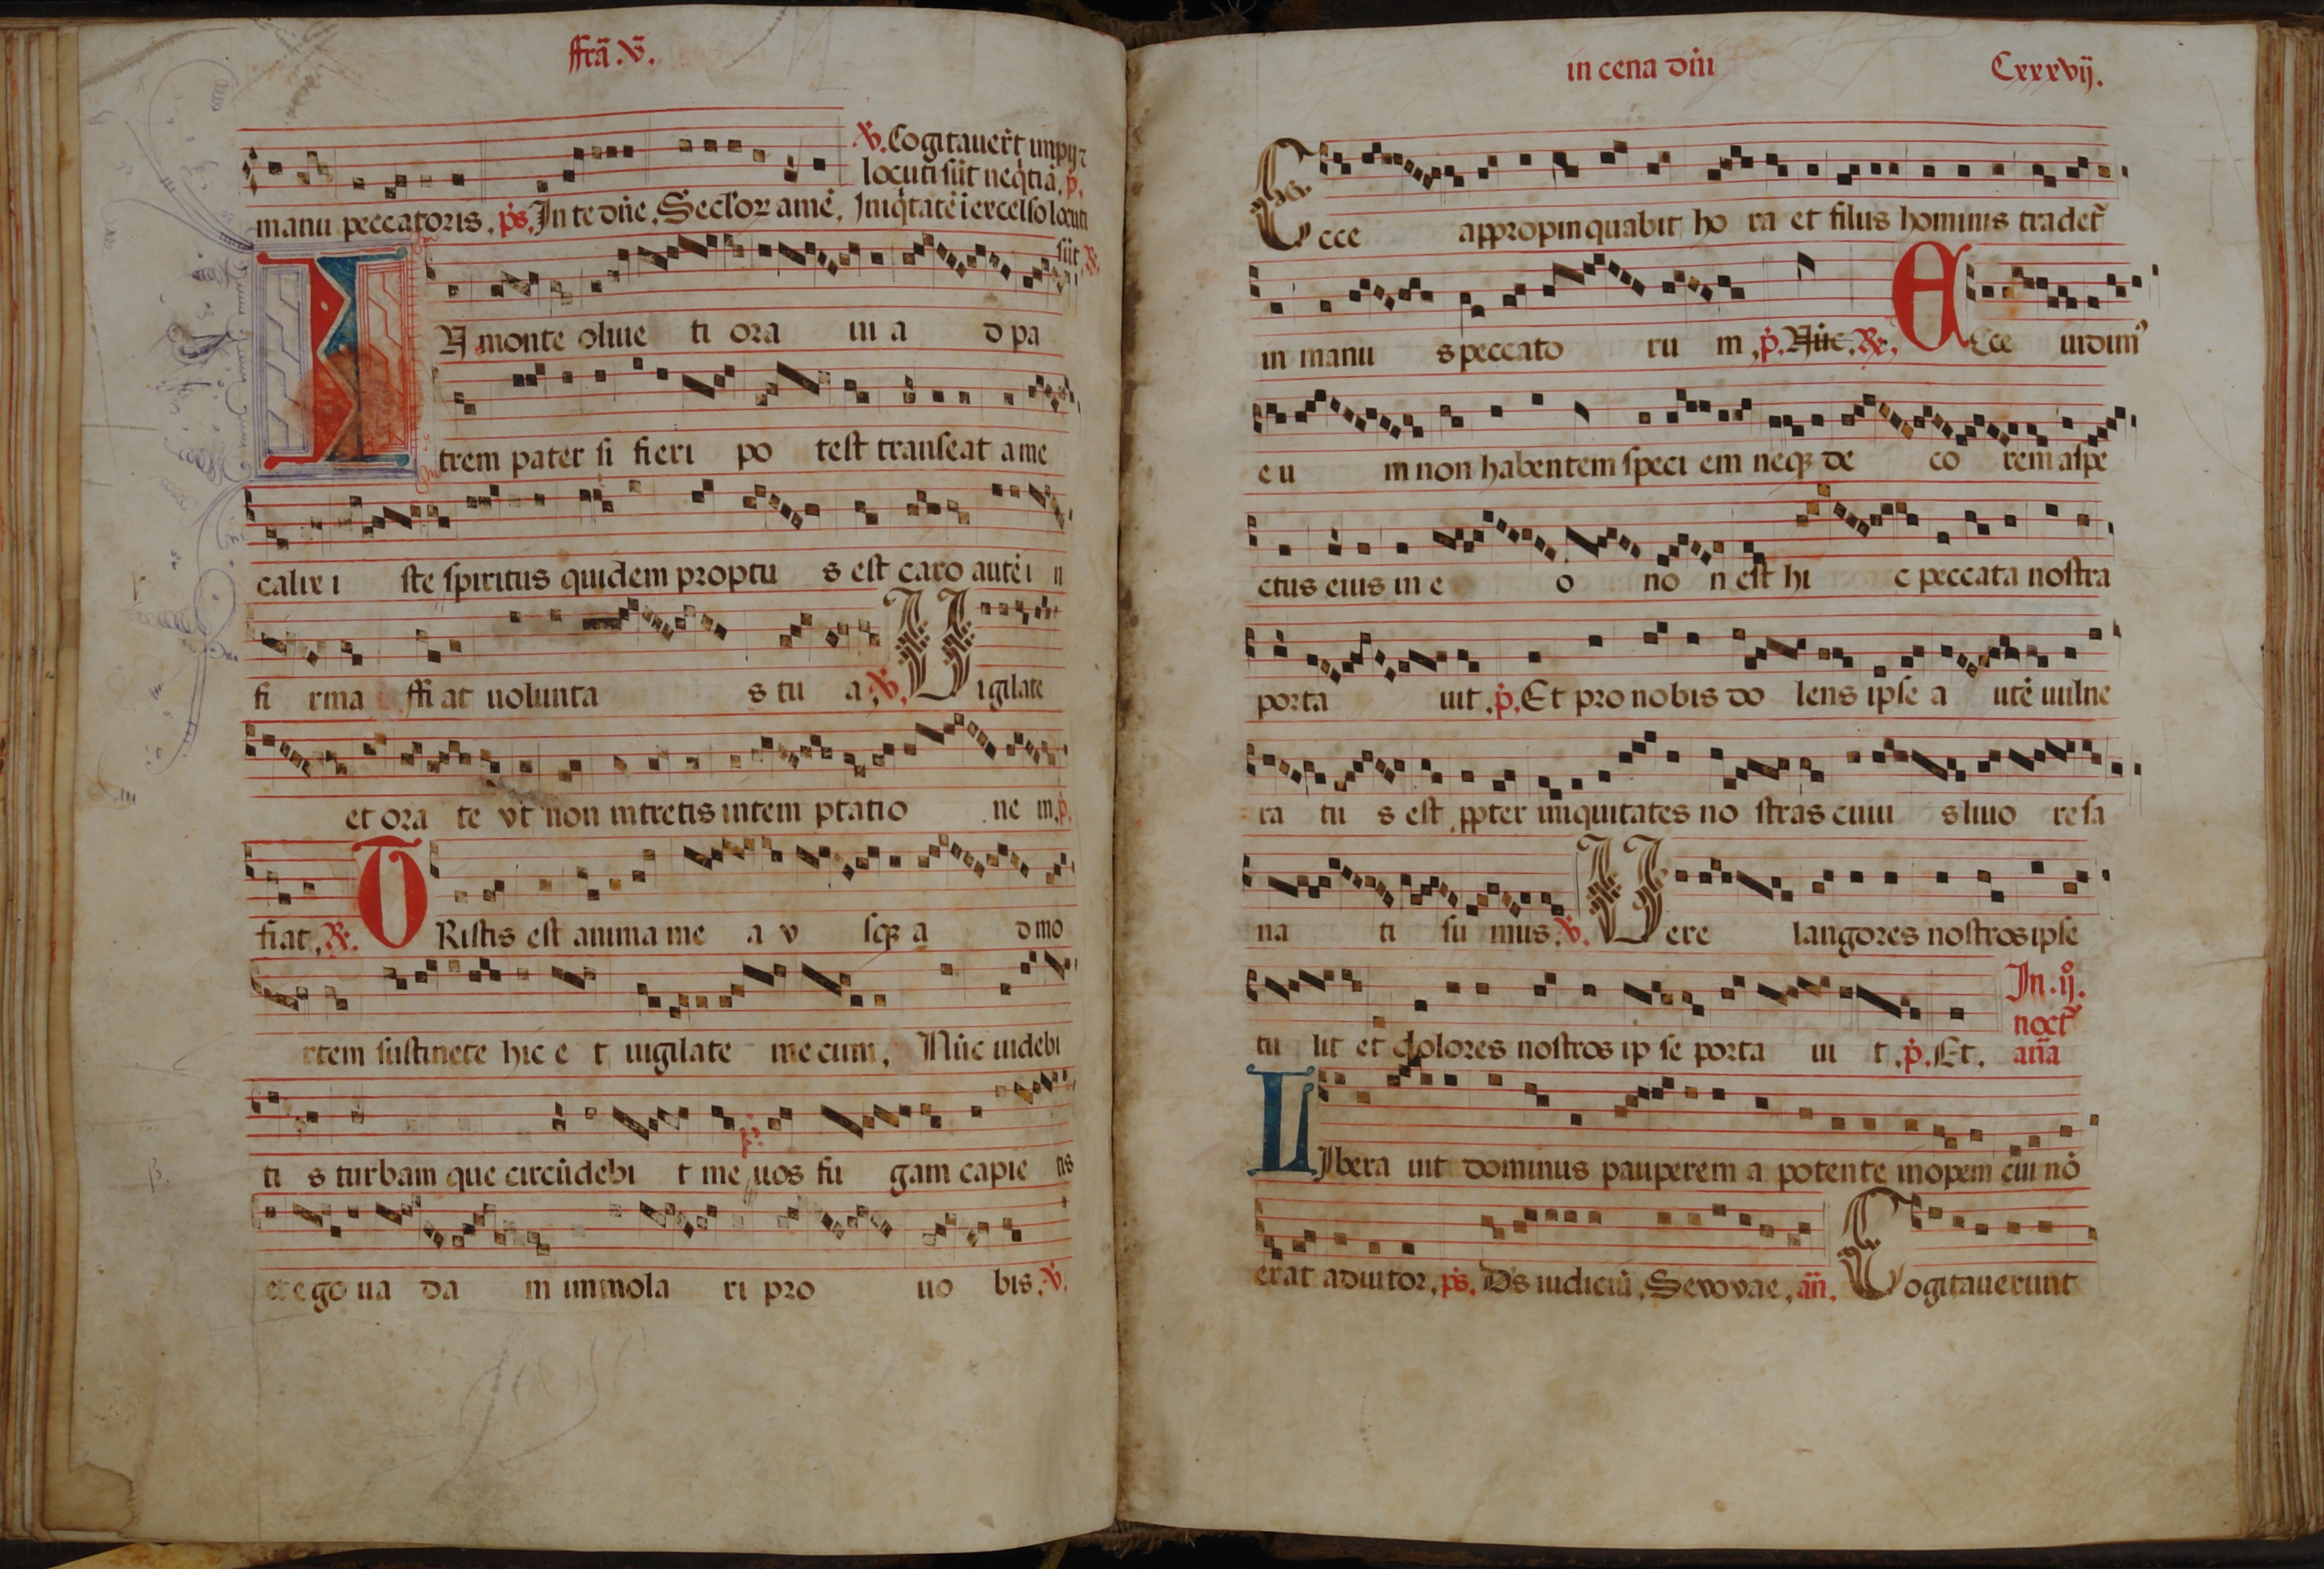 ffrā .v.
℣. Cogitauer̄t impij ⁊
locuti sūt neq̇tiā. p̄.
manu peccatoris. p̄s. In te dn̄e. Seclor amē. Iniq̇tatē i excelso locuti
sūt. ℟.
IN monte oliue ti ora ui a d pa
trem pater si fieri po test transeat a me
calix i ste spiritus quidem promptu s est caro autē i n
fi rma ffi at uolunta s tu a. ℣. Uigilate
et ora te vt non intretis in tem ptatio ne m. p̄.
fiat. ℟. TRistis est anima me a v sq̄ a d mo
rtem sustinete hic e t uigilate me cum. Nūc uidebi
ti s turbam que circūdebi t me uos fu gam capie tis
et ego ua da m immola ri pro uo bis. ℣.
in cena dn̄i Cxxxvij.
Ecce appropinquabit ho ra et filius hominis tradet̄
in manu s peccato ru m. p̄. Nūc. ℟. Ecce uidim᷒
e u m non habentem speci em neq̄ de co rem aspe
ctus eius in e o no n est hi c peccata nostra
porta uit. p̄. Et pro nobis do lens ipse a utē uulne
ra tu s est p̄pter iniquitates no stras cuiu s liuo re sa
na ti su mus. ℣. Uere langores nostros ipse
tu lit et dolores nostros ip se porta ui t. p̄. Et.
In .ij᷒.
noct̄
an̄a
LIbera uit dominus pauperem a potente inopem cui nō
erat adiutor. p̄s. Ds iudiciū. Sevovae. an̄. Cogitauerunt